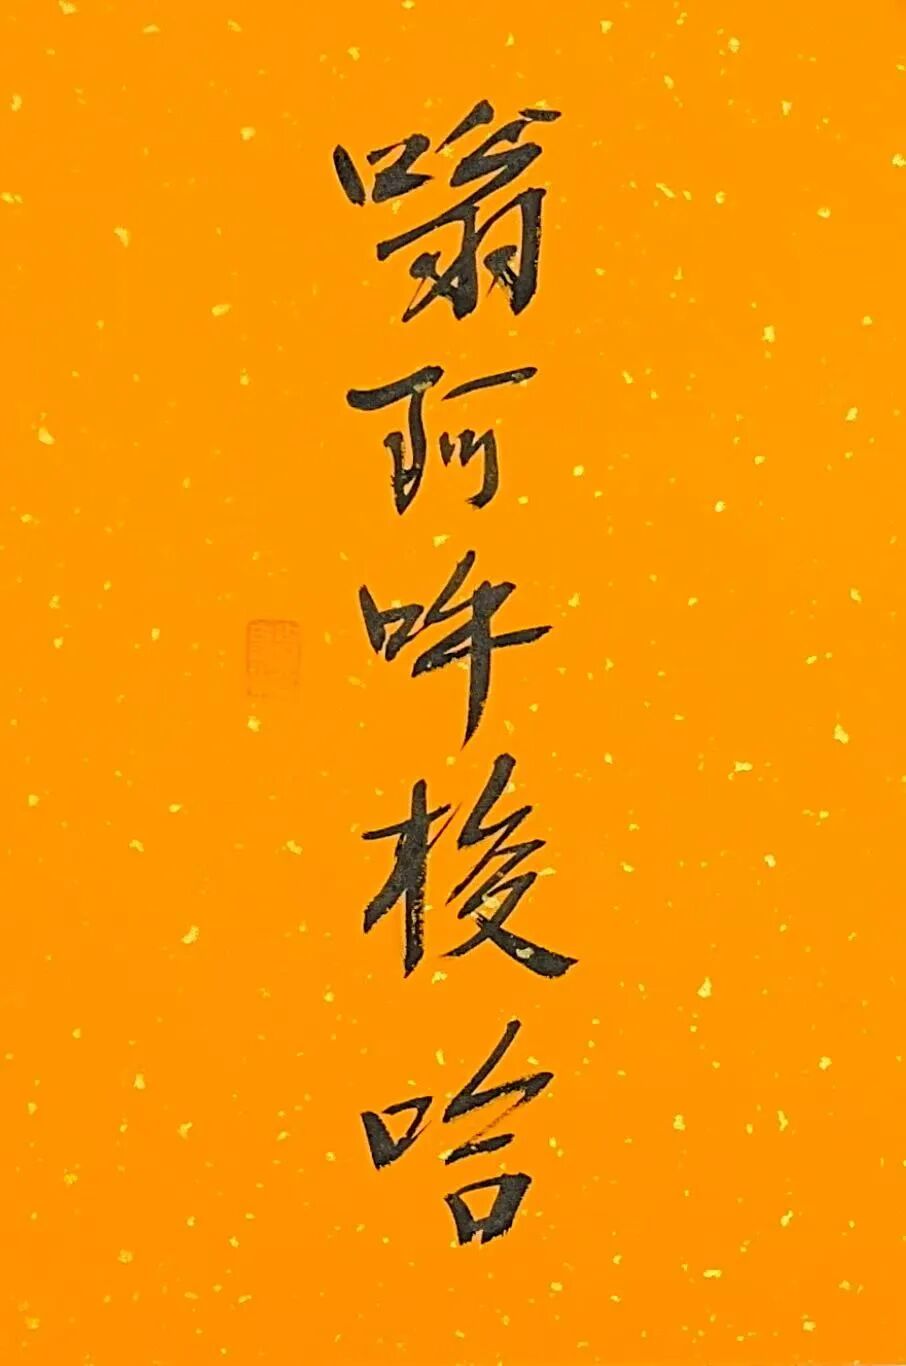 嗡阿吽梭哈